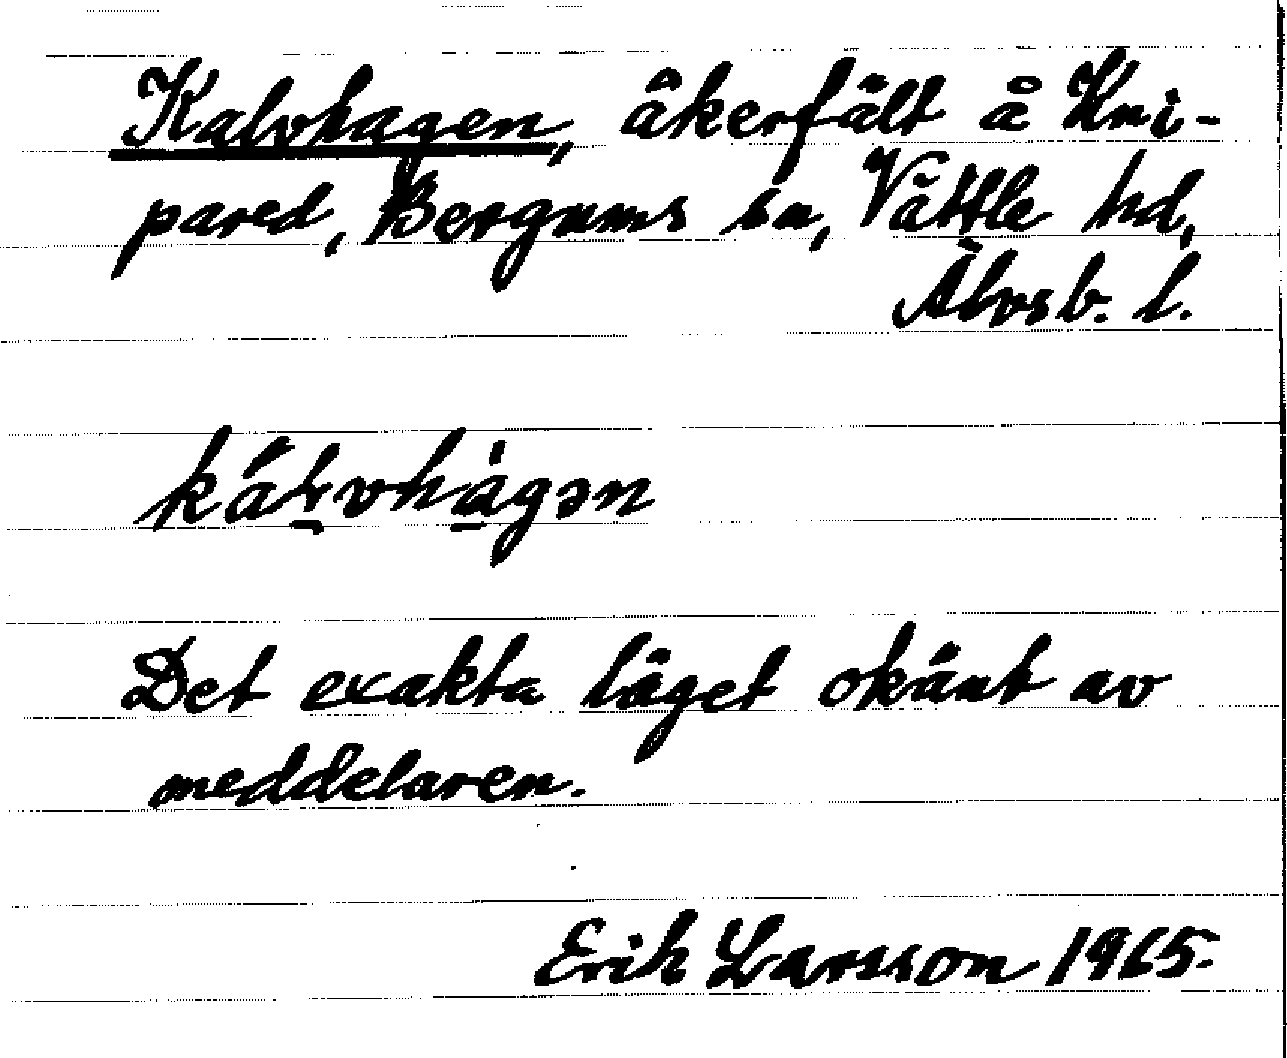 Kalvhagen, åkerfält å Kni-
pared, Bergums sn, Vättle hd,
Älvsb. l.
kálvhàgən
Det exakta läget okänt av
meddelaren.
Erik Larsson 1965.